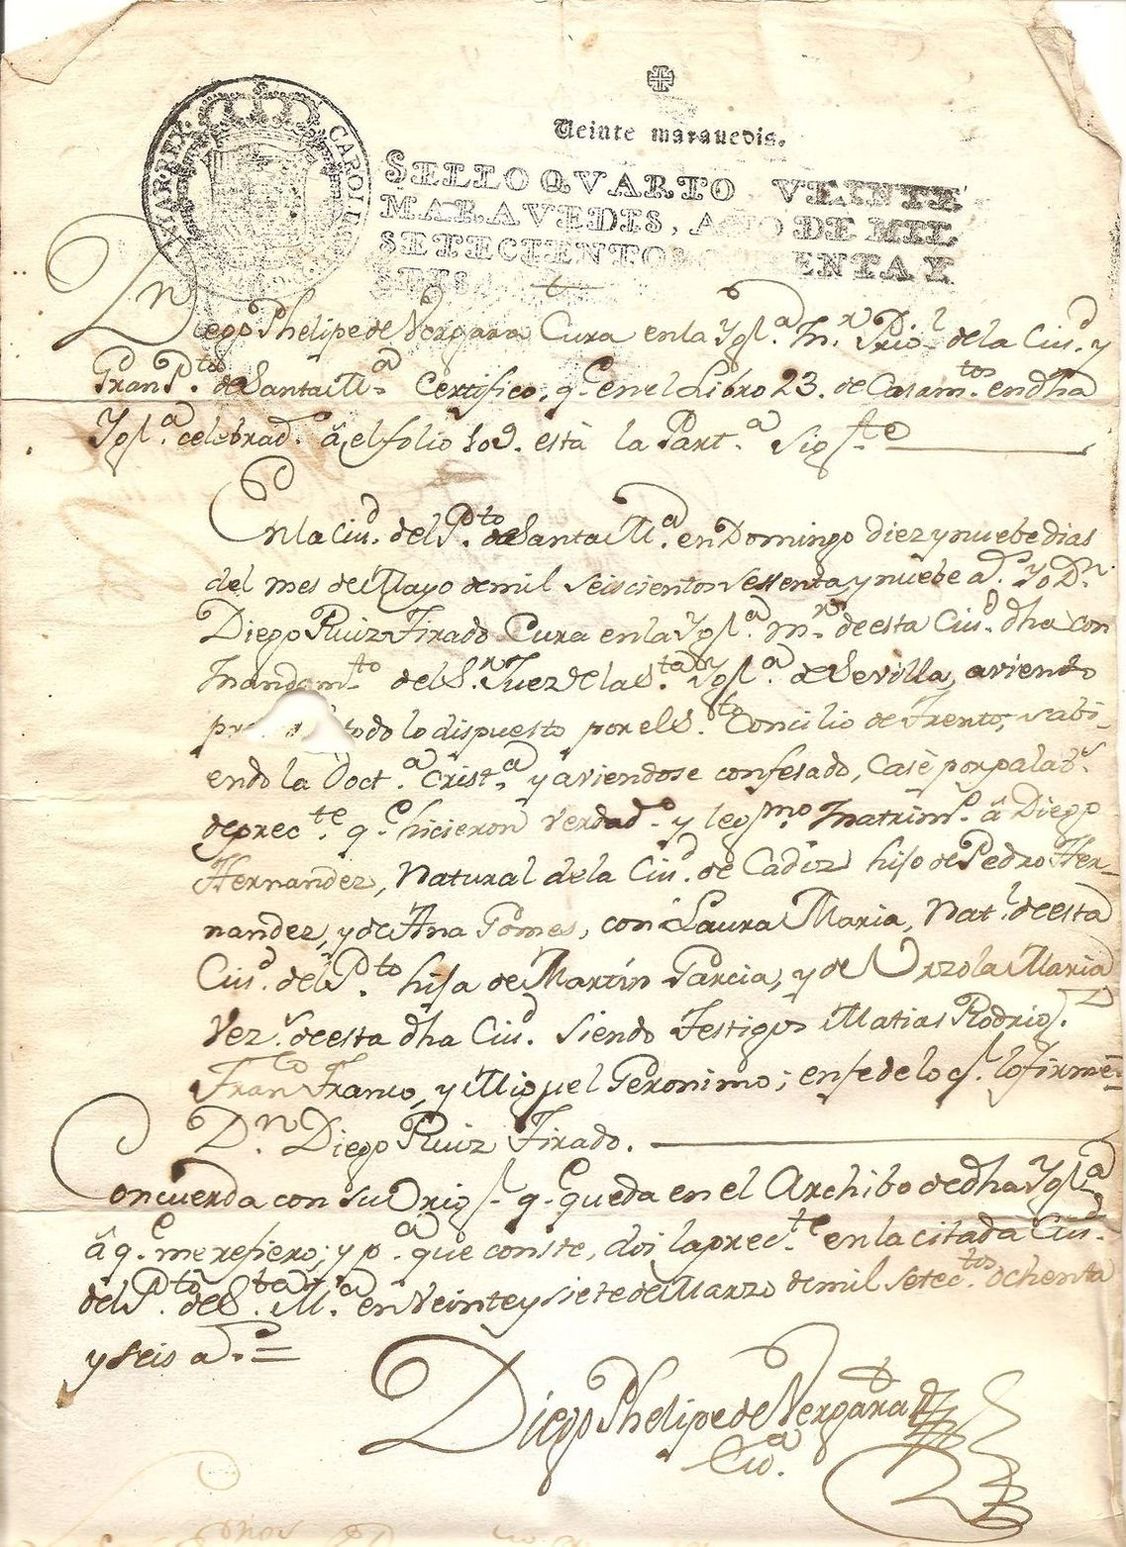 HISPANIAR·REX· CAROLUS
Veinte maravedis.
SELLO QVARTO, VEINTE
MARAVEDIS, AÑO DE MIL
SETECIENTOS OCHENTA Y
SEIS.
Dn Diego Phelipe de Vergara Cura en la Ygl.ª M.r Prio.l de la Ciu.d y
Gran P.to de Santa M.ª Certifico, q.e en el Libro 23. de Casam.tos en dha
Ygl.ª celebrad.os â, el folio 109. està la Part.ª Sig.te
En la Ciu.d del P.to de Santa M.ª en Domingo diez y nuebe dias
del mes de Mayo de mil seiscientos sessenta, y nuebe a.s Yo D.n
Diego Ruiz Tirado Cura en la Ygl.ª M.r de esta Ciu.d dha con
Mandam.to del S.r Juez de la S.ta Ygl.ª de Sevilla, aviendo
todo lo dispuesto por el S.to Concilio de Trento, sabi-
endo la Doct.ª Crist.ª y aviendose confesado, Casè por palab.s
de prec.te q.e hicieron verdad.o y legmo. Matrim.o â Diego
Hernandez, Natural de la Ciu.d de Cadiz hijo de Pedro Her-
nandez, y de Ana Gomes, con Laura Maria, Nat.l de esta
Ciu.d del P.to hija de Martín Garcia, y de Vrzola Maria
Vez.s de esta dha Ciu.d Siendo Testigos Matias Rodrig.z
Fran.co Franco, y Miguel Geronimo; en fe de lo q.l lo firmè=
D.n Diego Ruiz Tirado.
Concuerda con su Orig.l q.e queda en el Archibo de dha Ygl.ª
â q.e me refiero; y p.ª que conste, doi la prec.te en la citada Ciu.d
del P.to de S.ta M.ª en Veinte y siete de Marzo de mil Setec.tos ochenta
y seis a.s =
Diego Phelipe de Vergara
Cu.ª